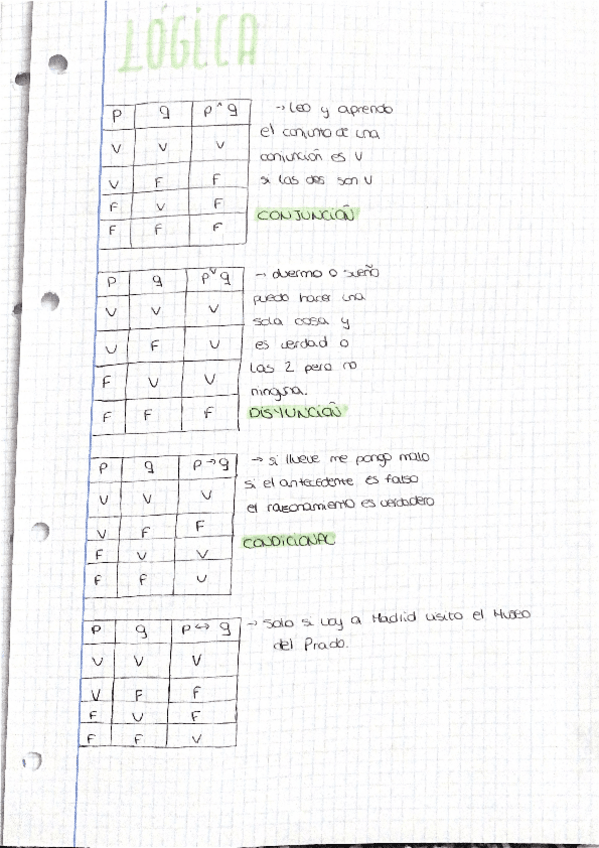 LÓGICA
p q p^q
V V V
V F F
F V F
F F F
→ Leo y aprendo
el conjunto de una
conjunción es V
si las dos son V
CONJUNCIÓN
p q p˅q
V V V
V F V
F V V
F F F
→ duermo o sueño
puedo hacer una
sola cosa y
es verdad o
las 2 pero no
ninguna.
DISYUNCIÓN
p q p→q
V V V
V F F
F V V
F F V
→ si llueve me pongo malo
si el antecedente es falso
el razonamiento es verdadero
CONDICIONAL
p q p↔q
V V V
V F F
F V F
F F V
→ Solo si voy a Madrid visito el Museo
del Prado.